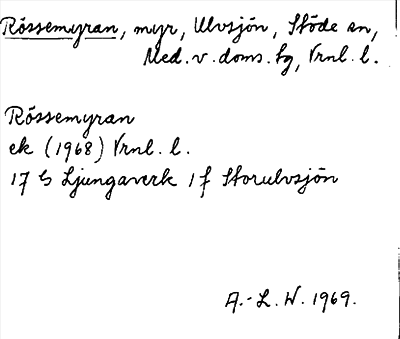 Rössemyran, myr, Ulvsjön, Stöde sn,
Med. v. doms. sg, Vrnl. l.
Rössemyran
ek (1968) Vrnl. l.
17 G Ljungaverk 1 f Storulvsjön
A.-L. W. 1969.